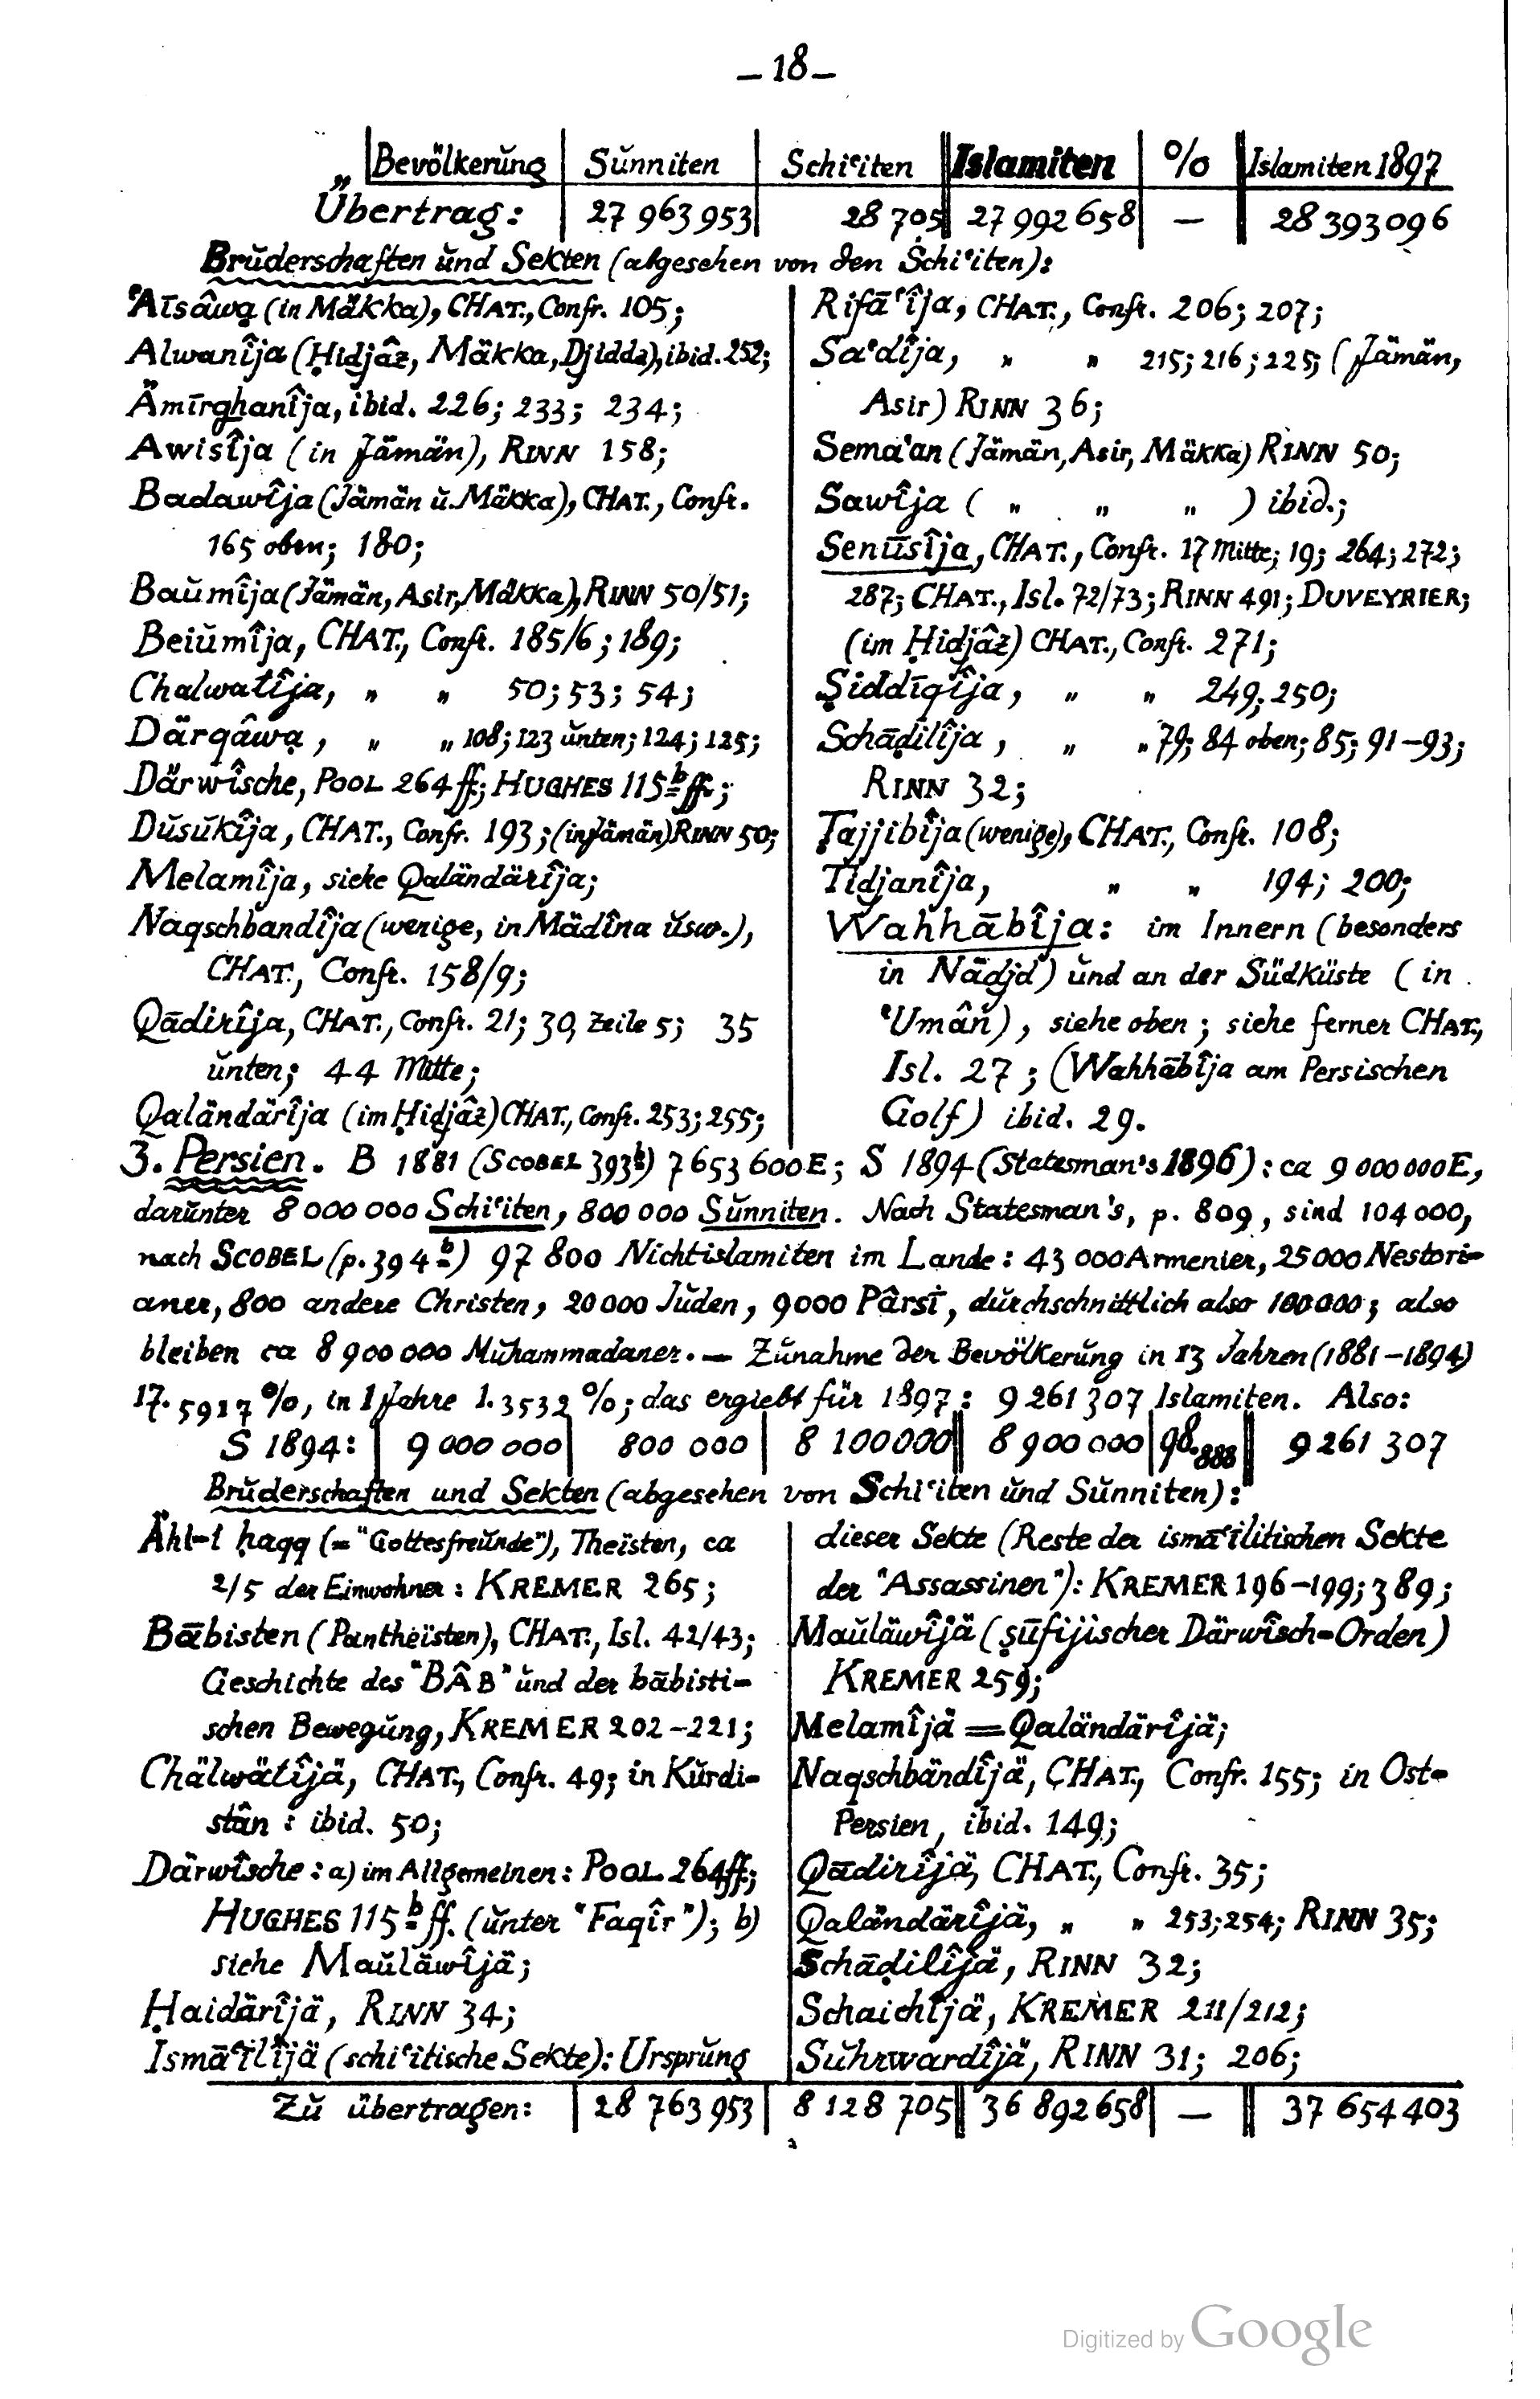 – 18 –
Bevölkerŭng | Sŭnniten | Schiʿiten || Islamiten | % || Islamiten 1897
Übertrag: | 27 963 953 | 28 705 || 27 992 658 | – || 28 393 096
Brŭderschaften ŭnd Sekten (abgesehen von den Schiʿiten):
ʿAīsâwạ (in Mäkka), CHAT., Confr. 105;
Alwanîja (Ḥidjâz, Mäkka, Djidda), ibid. 252;
Ämīrghanîja, ibid. 226; 233; 234;
Awisîja (in Jämän), RINN 158;
Badawîja (Jämän ŭ. Mäkka), CHAT., Confr.
165 oben; 180;
Baŭmîja (Jämän, Asir, Mäkka), RINN 50/51;
Beiŭmîja, CHAT., Confr. 185/6; 189;
Chalwatîja, „ „ 50; 53; 54;
Därqâwạ, „ „ 108; 123 ŭnten; 124; 125;
Därwîsche, POOL 264 ff.; HUGHES 115ᵇ ff.;
Dŭsŭkîja, CHAT., Confr. 193; (in Jämän) RINN 50;
Melamîja, siehe Qaländärîja;
Naqschbandîja (wenige, in Mädîna ŭsw.),
CHAT., Confr. 158/9;
Qādirîja, CHAT., Confr. 21; 30, Zeile 5; 35
ŭnten; 44 Mitte;
Qaländärîja (im Ḥidjâz) CHAT., Confr. 253; 255;
Rifāʿîja, CHAT., Confr. 206; 207;
Saʿdîja, „ „ 215; 216; 225; (Jämän,
Asir) RINN 36;
Semaʾan (Jämän, Asir, Mäkka) RINN 50;
Sawîja ( „ „ „ ) ibid.;
Senūsîja, CHAT., Confr. 17 Mitte; 19; 264; 272;
287; CHAT., Isl. 72/73; RINN 491; DUVEYRIER;
(im Ḥidjâz) CHAT., Confr. 271;
Ṣiddīqîja, „ „ 249; 250;
Schāḍilîja, „ „ 79; 84 oben; 85; 91–93;
RINN 32;
Ṭajjibîja (wenige), CHAT., Confr. 108;
Tīdjanîja, „ „ 194; 200;
Wahhābîja: im Innern (besonders
in Nädjd) ŭnd an der Südküste (in
ʿUmân), siehe oben; siehe ferner CHAT.,
Isl. 27; (Wahhābîja am Persischen
Golf) ibid. 29.
3. Persien. B 1881 (SCOBEL 393ᵇ) 7 653 600 E; S 1894 (Statesman's 1896): ca 9 000 000 E,
darŭnter 8 000 000 Schiʿiten, 800 000 Sŭnniten. Nach Statesman's, p. 809, sind 104 000,
nach SCOBEL (p. 394ᵇ) 97 800 Nichtislamiten im Lande: 43 000 Armenier, 25 000 Nestori-
aner, 800 andere Christen, 20 000 Jŭden, 9000 Pârsī, dŭrchschnittlich also 100 000; also
bleiben ca 8 900 000 Mŭhammadaner. – Zŭnahme der Bevölkerŭng in 13 Jahren (1881–1894)
17.5917 %, in 1 Jahre 1.3532 %; das ergiebt für 1897: 9 261 307 Islamiten. Also:
S 1894: | 9 000 000 | 800 000 | 8 100 000 || 8 900 000 | 98.888 || 9 261 307
Brŭderschaften ŭnd Sekten (abgesehen von Schiʿiten ŭnd Sŭnniten):
Ähl-i ḥaqq (= "Gottesfreŭnde"), Theïsten, ca
2/5 der Einwohner: KREMER 265;
Bābisten (Pantheïsten), CHAT., Isl. 42/43;
Geschichte des "BÂB" ŭnd der bābisti-
schen Bewegŭng, KREMER 202–221;
Chälwätîjä, CHAT., Confr. 49; in Kŭrdi-
stân: ibid. 50;
Därwîsche: a) im Allgemeinen: POOL 264 ff.;
HUGHES 115ᵇ ff. (ŭnter "Faqîr"); b)
siehe Maŭläwîjä;
Ḥaidärîjä, RINN 34;
Ismāʿīlîjä (schiʿitische Sekte): Ursprŭng
dieser Sekte (Reste der ismāʿīlitischen Sekte
der "Assassinen"): KREMER 196–199; 389;
Maŭläwîjä (ṣūfijischer Därwîsch-Orden)
KREMER 259;
Melamîjä = Qaländärîjä;
Naqschbändîjä, CHAT., Confr. 155; in Ost-
Persien, ibid. 149;
Qādirîjä, CHAT., Confr. 35;
Qaländärîjä, „ „ 253; 254; RINN 35;
Schāḍilîjä, RINN 32;
Schaichîjä, KREMER 211/212;
Sŭhrwardîjä, RINN 31; 206;
Zŭ übertragen: | 28 763 953 | 8 128 705 || 36 892 658 | – || 37 654 403
Digitized by Google